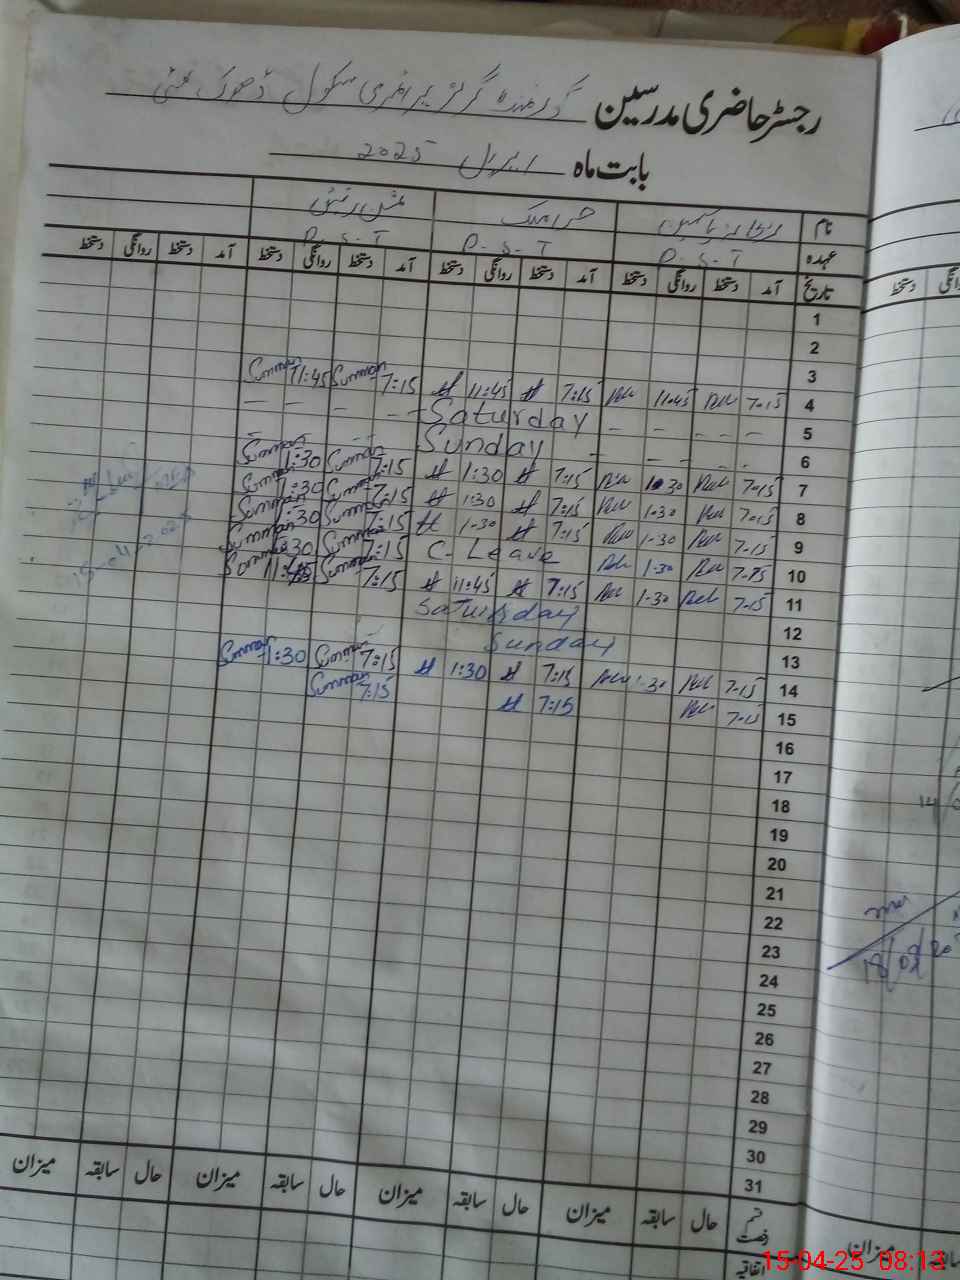 رجسٹر حاضری مدرسین گورنمنٹ گرلز پرائمری سکول ڈھوک
بابت ماہ اپریل 2025
نام
عہدہ P.S.T P.S.T P.S.T
تاریخ آمد دستخط روانگی دستخط آمد دستخط روانگی دستخط آمد دستخط روانگی دستخط آمد دستخط روانگی دستخط
1
2
3
4 7-15 11-45 7:15 11:45 7:15 Summan 11:45 Summan
5 Saturday
6 Sunday
7 7-15 1-30 7:15 1:30 7:15 Summan 1:30 Summan
8 7-15 1-30 7:15 1:30 7:15 Summan 1:30 Summan
9 7-15 1-30 7:15 1-30 7:15 Summan 1:30 Summan
10 7-15 1-30 C-Leave 7:15 Summan 1:30 Summan
11 7-15 1-30 7:15 11:45 7:15 Summan 11:45 Summan
12 Saturday
13 Sunday
14 7-15 1-30 7:15 1:30 7:15 Summan 1:30 Summan
15 7-15 7:15 7:15 Summan
15-04-2025
16
17
18
19
20
21
22
23
24
25
26
27
28
29
30
31
قسم رخصت حال سابقہ میزان حال سابقہ میزان حال سابقہ میزان حال سابقہ میزان
اتفاقیہ
دستخط
18/09/20
میزان
15-04-25 08:13